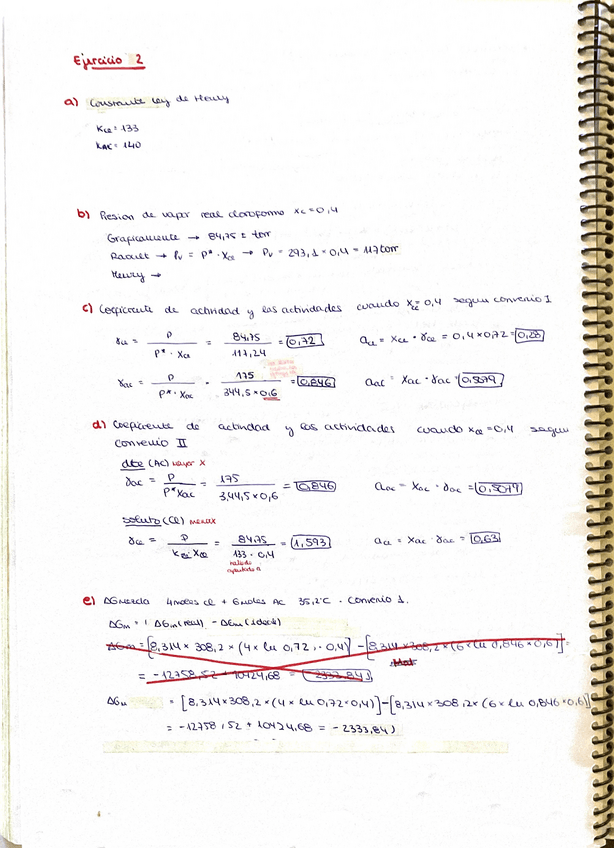 Ejercicio 2
a) Constante Ley de Henry
Kce = 133
KAC = 140
b) Presion de vapor real cloroformo xc = 0,4
Graficamente → 84,75 torr
Raoult → Pv = P* · Xce → Pv = 293,1 × 0,4 = 117 torr
Henry →
c) Coeficiente de actividad y las actividades cuando xce = 0,4 segun convenio I
γce = P / P* · Xce = 84,75 / 117,24 = 0,72 ace = xce · γce = 0,4 × 0,72 = 0,28
γac = P / P* · Xac = 175 / 344,5 × 0,6 = 0,846 aac = xac · γac = 0,5079
d) Coeficiente de actividad y las actividades cuando xce = 0,4 segun
convenio II
dte (AC) mayor x
γac = P / P* Xac = 175 / 344,5 × 0,6 = 0,846 aac = xac · γac = 0,5079
soluto (Cl) menor x
γce = P / Kce · Xce = 84,75 / 133 · 0,4 = 1,593 ace = xac · γac = 0,63
apartado a
e) ΔG mezcla 4 moles cl + 6 moles AC 35,2°C · Convenio 1.
ΔGm = ΔGm (real) - ΔGm (ideal)
ΔGm = [8,314 × 308,2 × (4 × ln 0,72 · 0,4)] - [8,314 × 308,2 × (6 × ln 0,846 × 0,6)] =
= -12758,52 + 10424,68 = -2333,84 J
ΔGm = [8,314 × 308,2 × (4 × ln 0,72 × 0,4)] - [8,314 × 308,2 × (6 × ln 0,846 × 0,6)]
= -12758,52 + 10424,68 = -2333,84 J